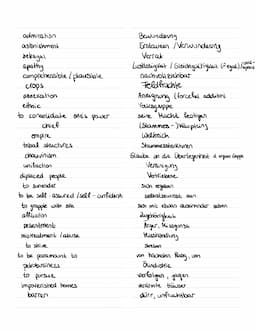 admiration Bewunderung
astonishment Erstaunen / Verwunderung
betrayal Verrat
apathy
comprehensible / plausible nachvollziehbar
crops Feldfrüchte
annexation Aneignung (forcible addition)
ethnic Volksgruppe
to consolidate one's power seine Macht festigen
chief (Stammes-) Häuptling
empire Weltreich
tribal structures Stammesstrukturen
chauvinism Glaube an die Überlegenheit d. eigenen Gruppe
unification Vereinigung
displaced people Vertriebene
to surrender sich ergeben
to be self-assured / self-confident selbstbewusst sein
to grapple with sth sich mit etwas auseinander setzen
affiliation Zugehörigkeit
resentment Ärger, Missgunst
mistreatment / abuse Misshandlung
to strive streben
to be paramount to von höchstem Rang, von
agribusiness
to pursue verfolgen, jagen
impoverished homes verarmte Häuser
barren dürr, unfruchtbar